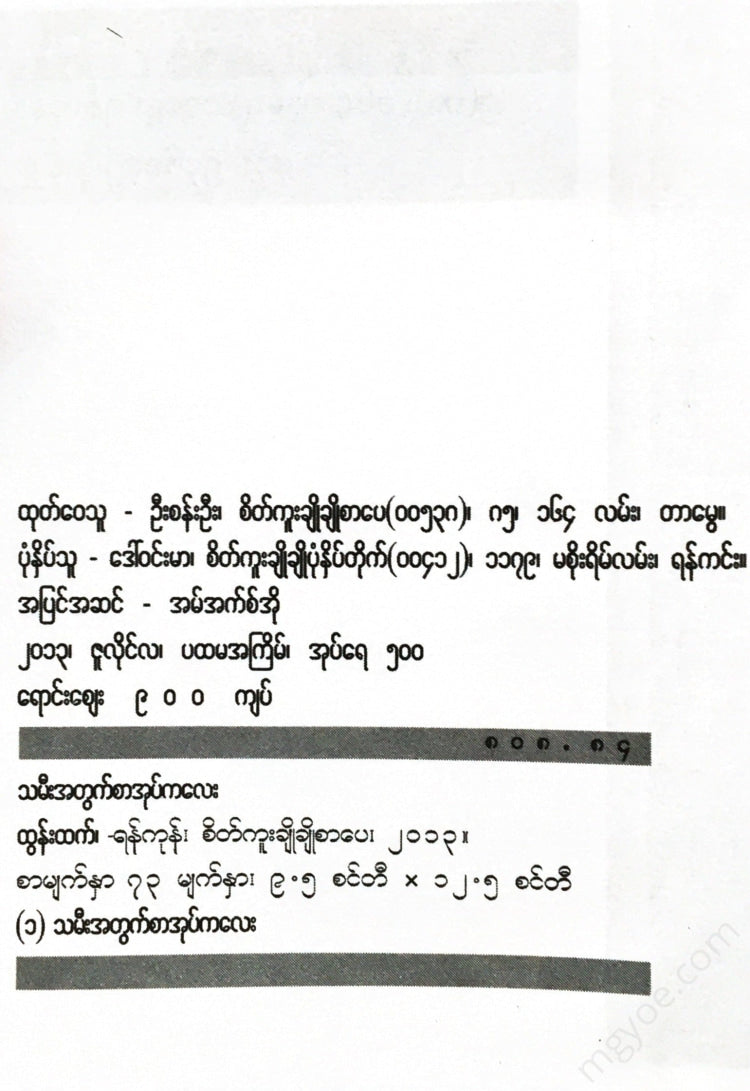 ထုတ်ဝေသူ - ဦးစန်းဦး၊ စိတ်ကူးချိုချိုစာပေ(၀၀၅၃၈)၊ ဂ၅၊ ၁၆၄ လမ်း၊ တာမွေ။
ပုံနှိပ်သူ - ဒေါ်ဝင်းမာ၊ စိတ်ကူးချိုချိုပုံနှိပ်တိုက်(၀၀၄၁၂)၊ ၁၁၇၉၊ မစိုးရိမ်လမ်း၊ ရန်ကင်း။
အပြင်အဆင် - အမ်အက်စ်အို
၂၀၁၃၊ ဇူလိုင်လ၊ ပထမအကြိမ်၊ အုပ်ရေ ၅၀၀
ရောင်းဈေး ၉၀၀ ကျပ်
၈၀၈.၈၄
သမီးအတွက်စာအုပ်ကလေး
ထွန်းထက်၊ -ရန်ကုန်၊ စိတ်ကူးချိုချိုစာပေ၊ ၂၀၁၃။
စာမျက်နှာ ၇၃ မျက်နှာ၊ ၉.၅ စင်တီ × ၁၂.၅ စင်တီ
(၁) သမီးအတွက်စာအုပ်ကလေး
mgyoe.com